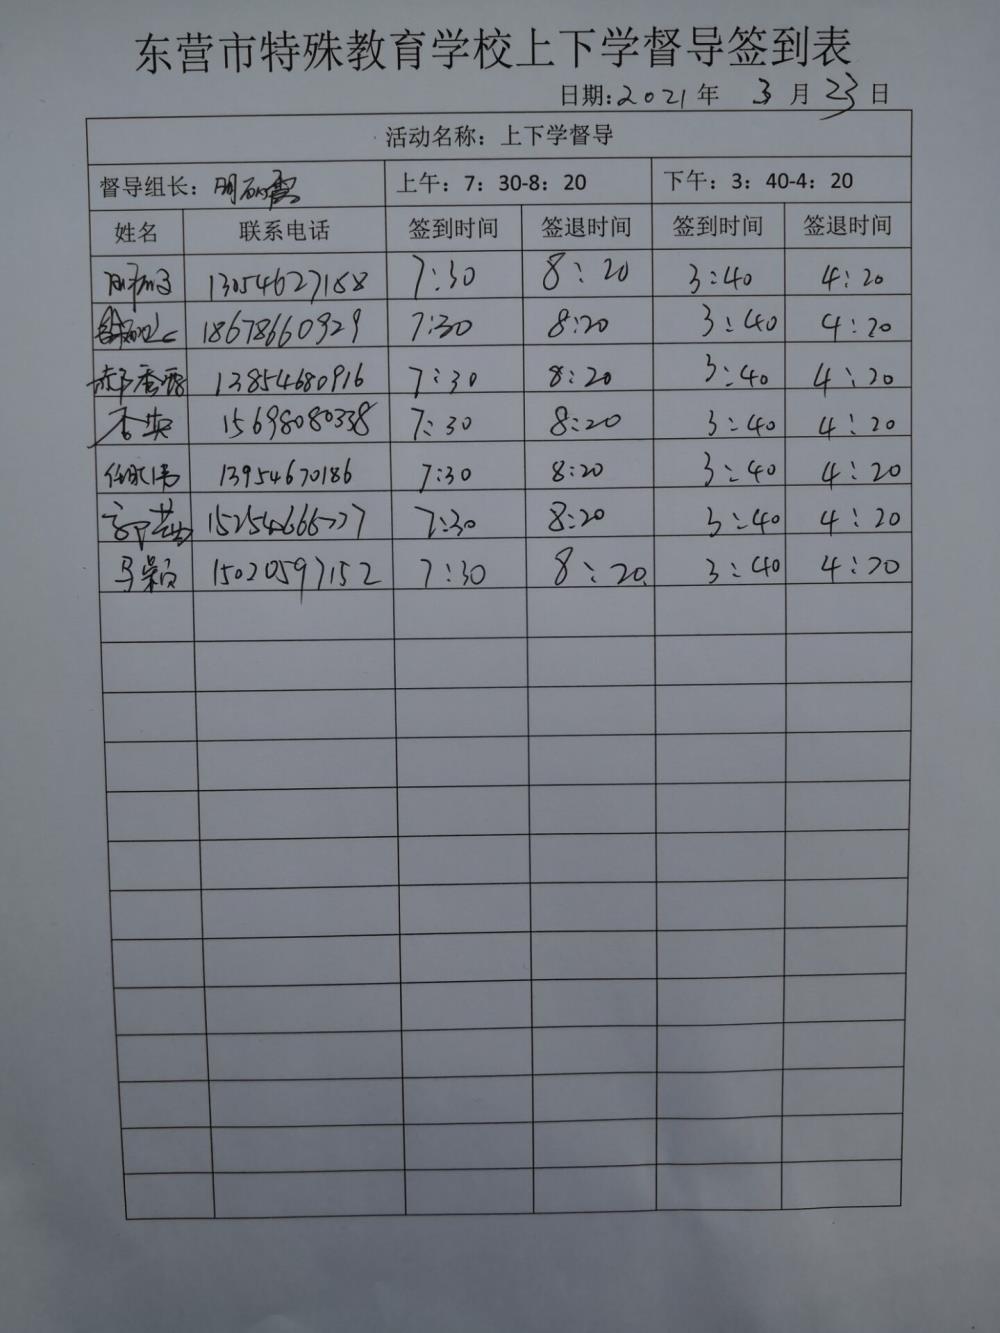 东营市特殊教育学校上下学督导签到表
日期:2021年 3月23日
活动名称：上下学督导
督导组长： 上午：7：30-8：20 下午：3：40-4：20
姓名 联系电话 签到时间 签退时间 签到时间 签退时间
13054627188 7:30 8:20 3:40 4:20
18678660929 7:30 8:20 3:40 4:20
13854680916 7:30 8:20 3:40 4:20
15698080338 7:30 8:20 3:40 4:20
13954670186 7:30 8:20 3:40 4:20
15254666777 7:30 8:20 3:40 4:20
马颖 15020597152 7:30 8:20 3:40 4:20